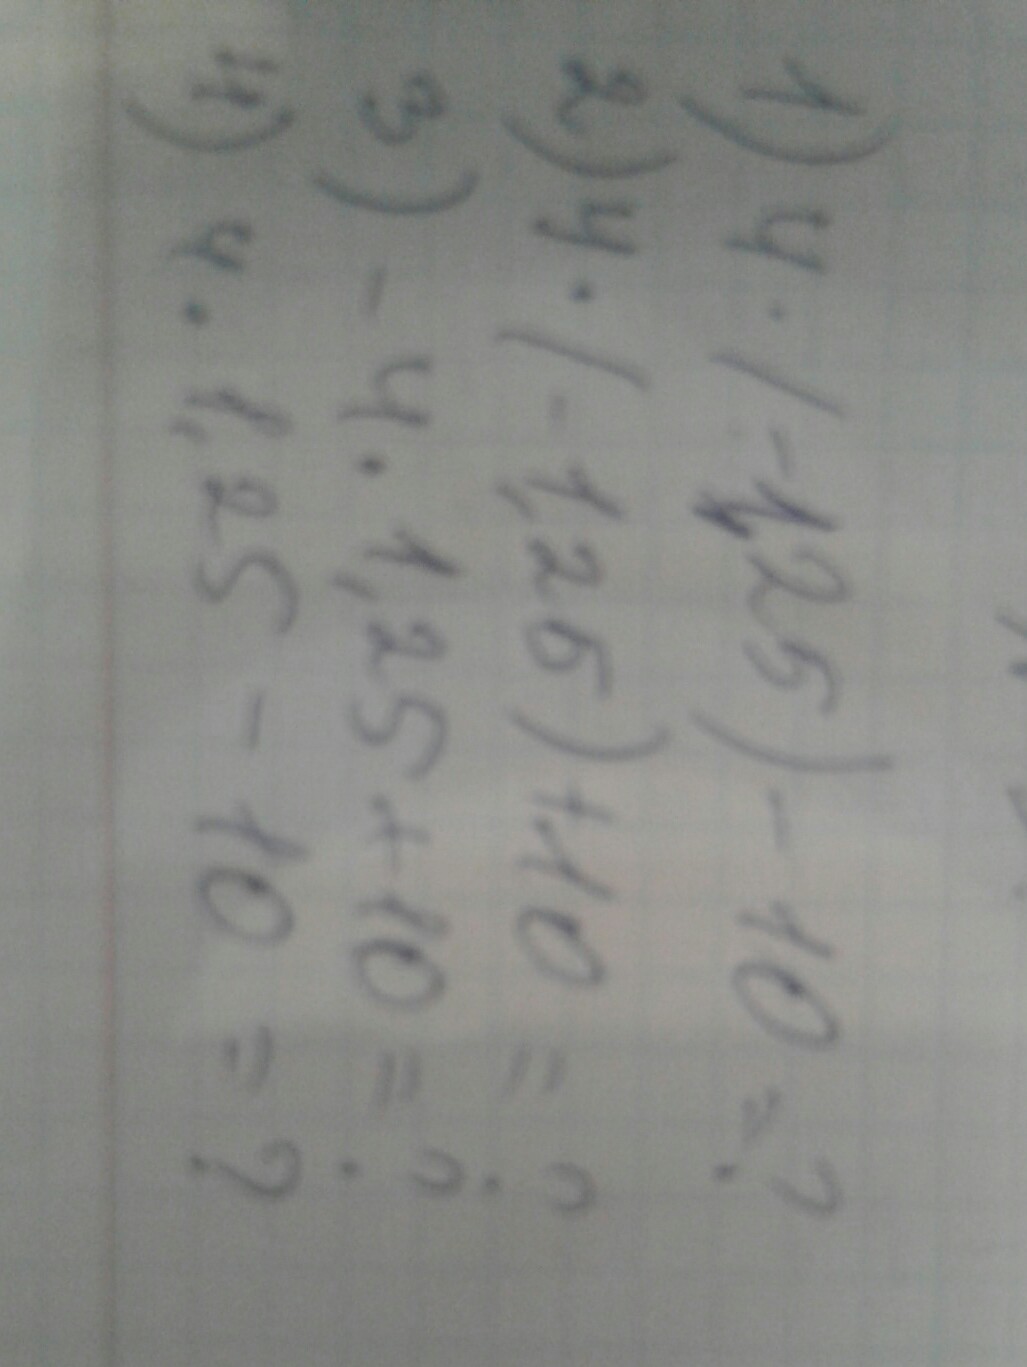 1) 4 · (-1,25) - 10 = ?
2) 4 · (-1,25) + 10 = ?
3) - 4 · 1,25 + 10 = ?
4) 4 · 1,25 - 10 = ?